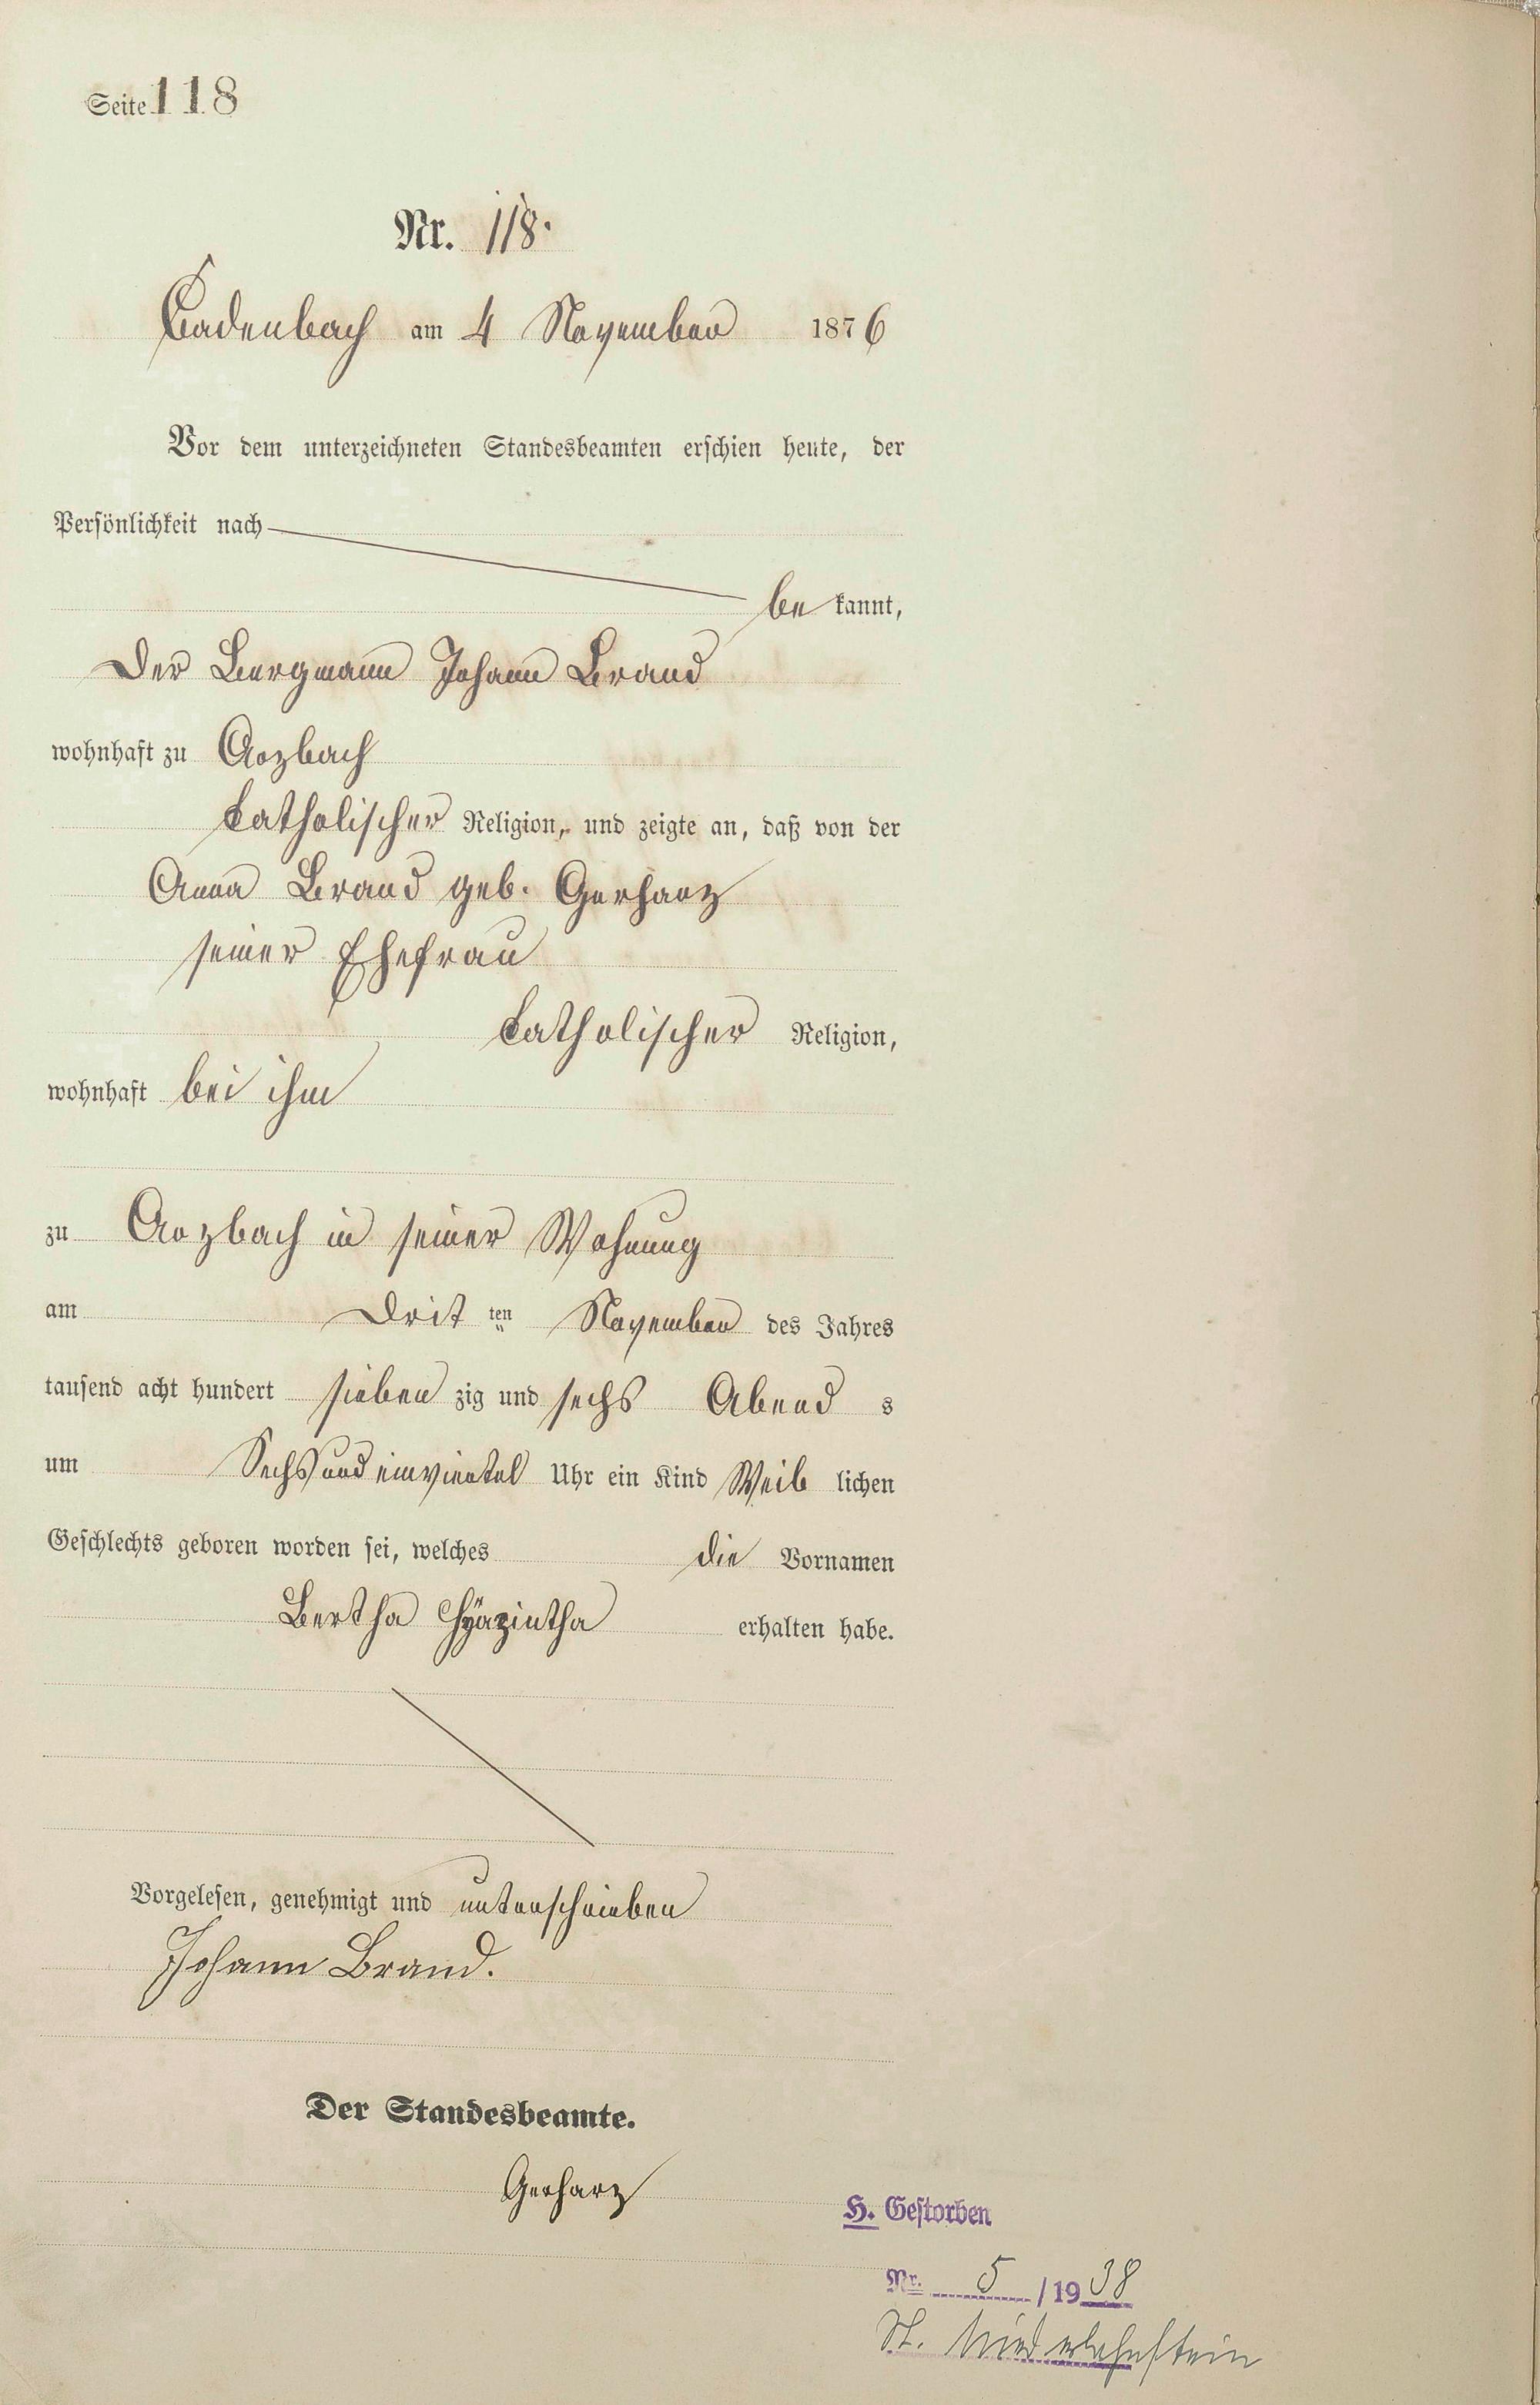 Seite 118
Nr. 118.
Cadenbach am 4 November 1876
Vor dem unterzeichneten Standesbeamten erschien heute, der
Persönlichkeit nach
be kannt,
Der Bergmann Johann Brand
wohnhaft zu Arzbach
katholischer Religion, und zeigte an, daß von der
Anna Brand geb. Gerharz
seiner Ehefrau
katholischer Religion,
wohnhaft bei ihm
zu Arzbach in seiner Wohnung
am Drit ten November des Jahres
tausend acht hundert sieben zig und sechs Abend s
um Sechs und einviertel Uhr ein Kind Weib lichen
Geschlechts geboren worden sei, welches die Vornamen
Bertha Hyazintha erhalten habe.
Vorgelesen, genehmigt und unterschrieben
Johann Brand.
Der Standesbeamte.
Gerharz
H. Gestorben
Nr. 5 / 19 38
St. Niederlahnstein